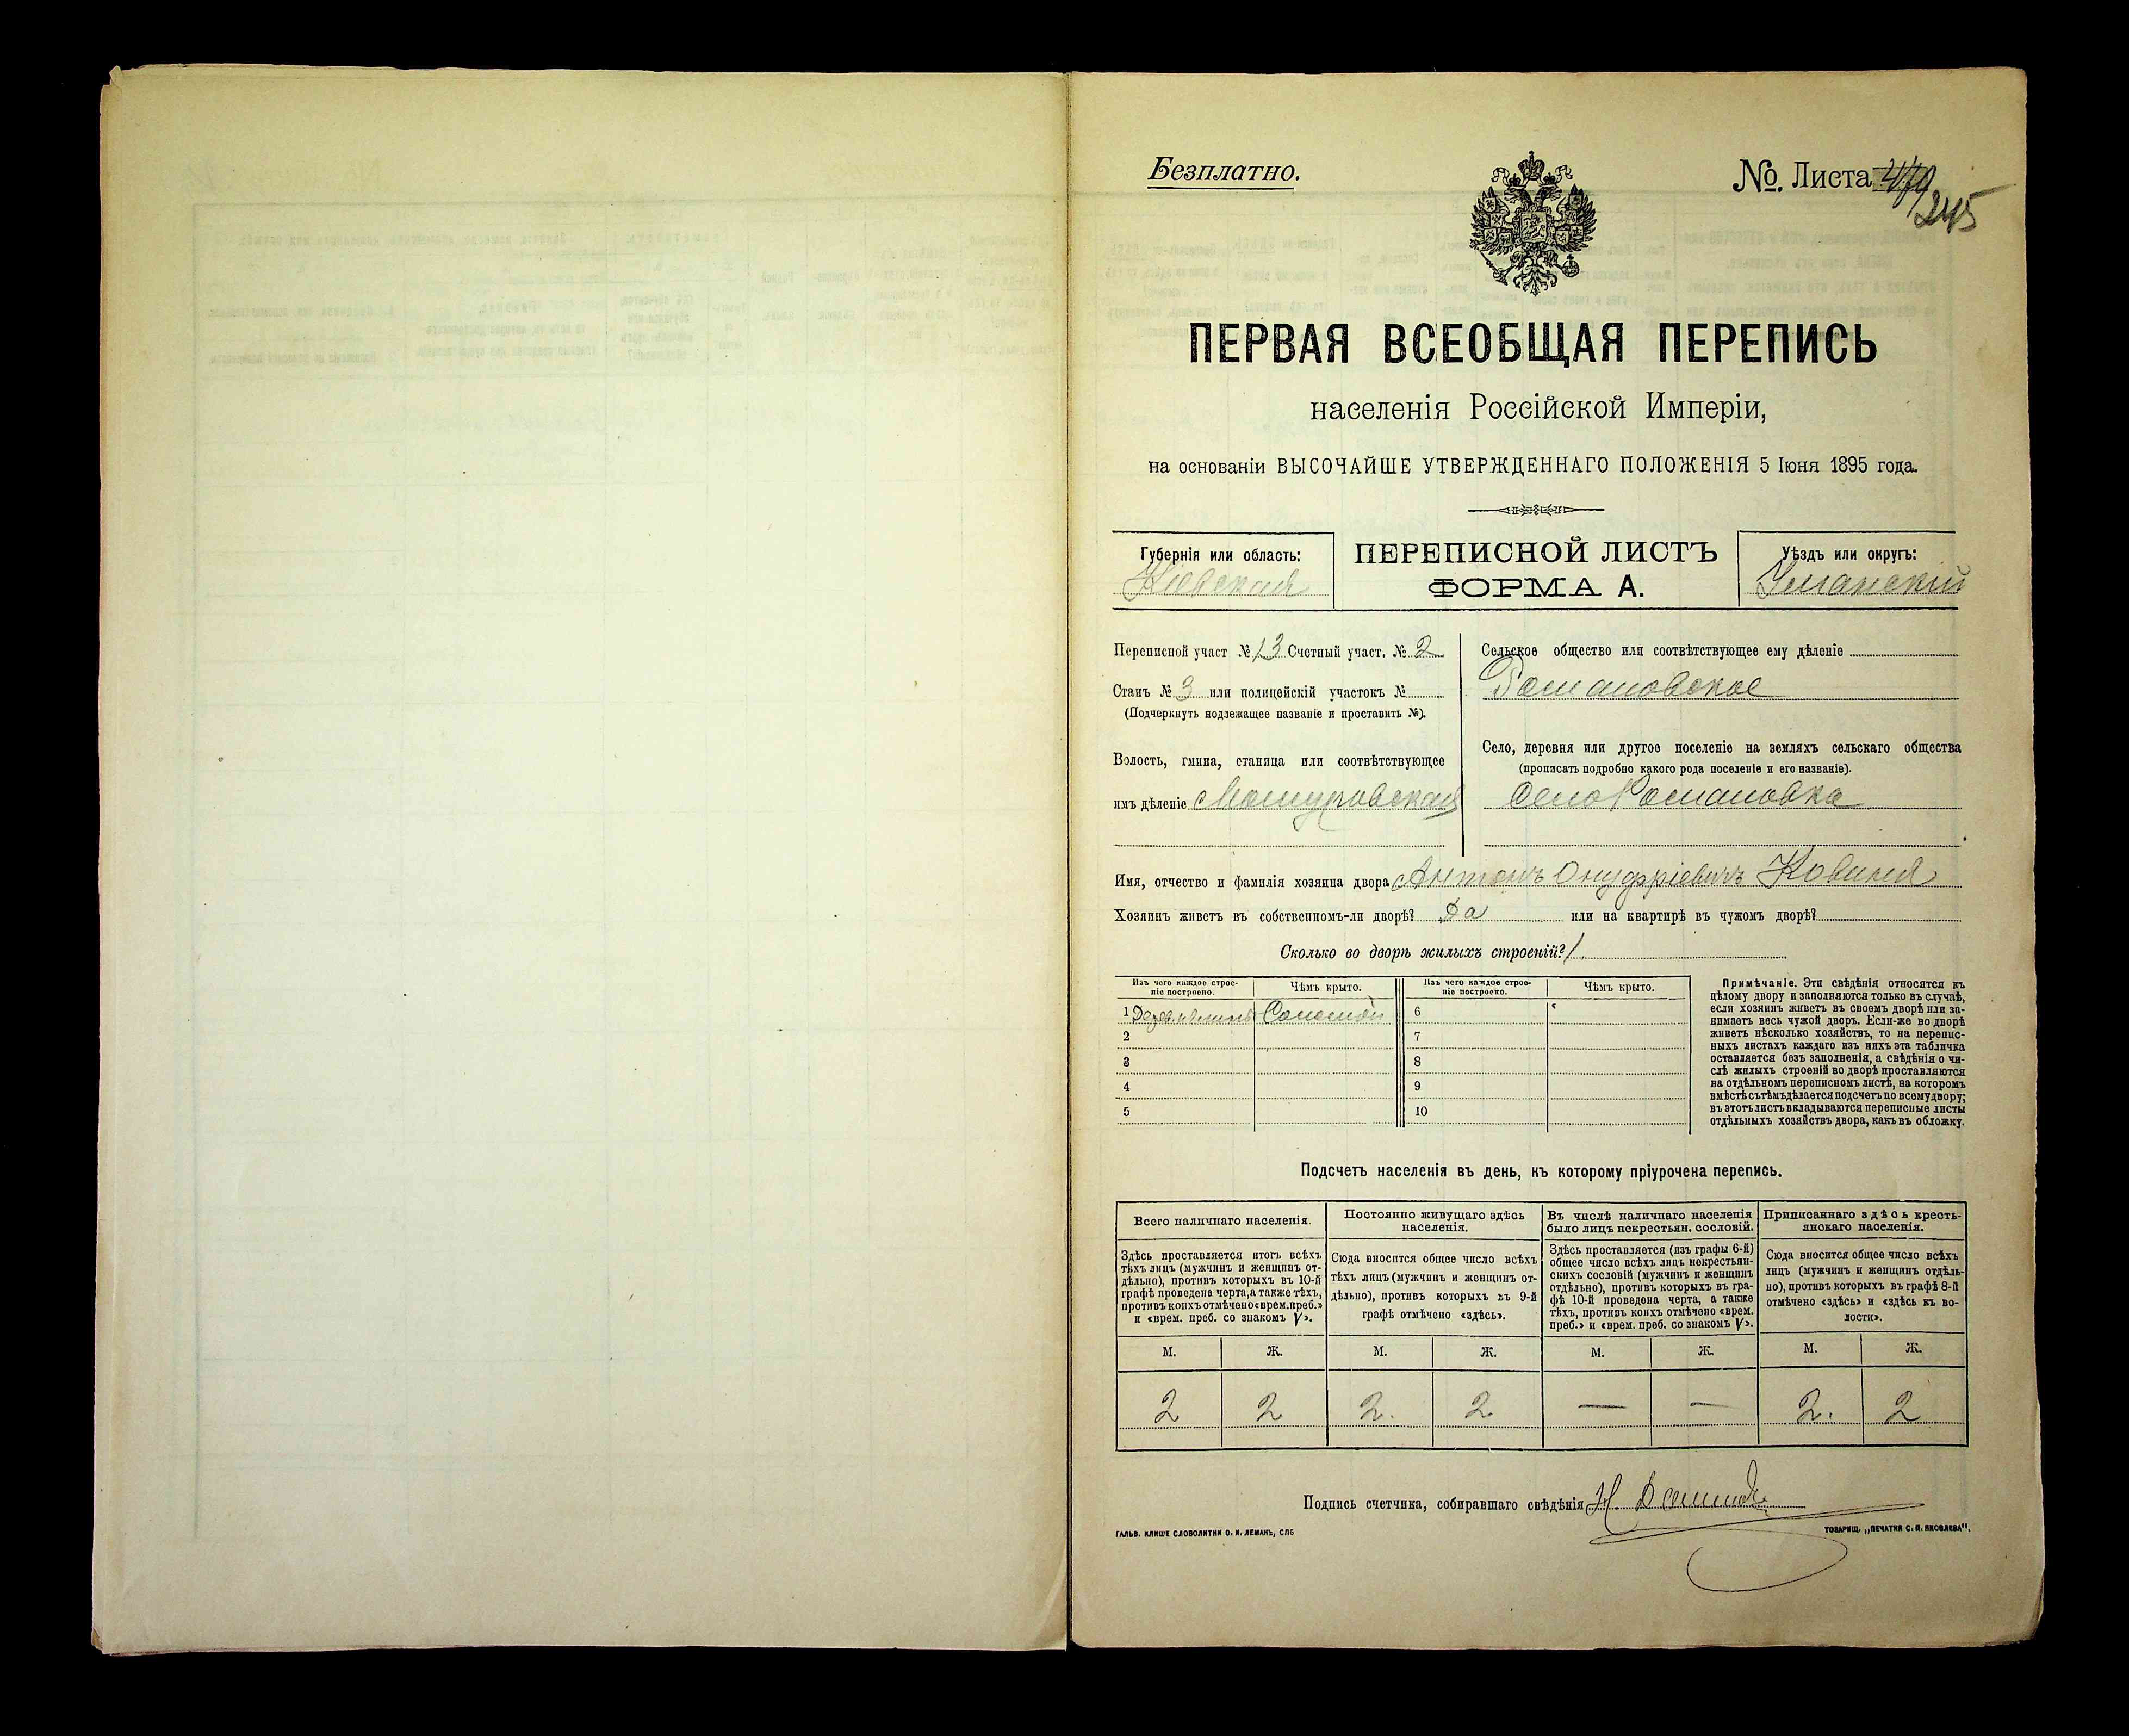 Безплатно.
№. Листа 245
ПЕРВАЯ ВСЕОБЩАЯ ПЕРЕПИСЬ
населенія Россійской Имперіи,
на основаніи ВЫСОЧАЙШЕ УТВЕРЖДЕННАГО ПОЛОЖЕНІЯ 5 Іюня 1895 года.
Губернія или область:
Кіевская
ПЕРЕПИСНОЙ ЛИСТЪ
ФОРМА А.
Уѣздъ или округъ:
Уманскій
Переписной участ № 13 Счетный участ. № 2
Станъ № 3 или полицейскій участокъ №
(Подчеркнуть подлежащее названіе и проставить №).
Волость, гмина, станица или соотвѣтствующее
имъ дѣленіе Машуровская
Сельское общество или соотвѣтствующее ему дѣленіе
Романовское
Село, деревня или другое поселеніе на земляхъ сельскаго общества
(прописать подробно какого рода поселеніе и его названіе).
Село Романовка
Имя, отчество и фамилія хозяина двора Антонъ Онуфріевичъ
Хозяинъ живетъ въ собственномъ-ли дворѣ? Да или на квартирѣ въ чужомъ дворѣ?
Сколько во дворѣ жилыхъ строеній? 1.
Изъ чего каждое строе-
ніе построено.
Чѣмъ крыто.
Изъ чего каждое строе-
ніе построено.
Чѣмъ крыто.
1 Соломой 6
2 7
3 8
4 9
5 10
Примѣчаніе. Эти свѣдѣнія относятся къ
цѣлому двору и заполняются только въ случаѣ,
если хозяинъ живетъ въ своемъ дворѣ или за-
нимаетъ весь чужой дворъ. Если-же во дворѣ
живетъ нѣсколько хозяйствъ, то на перепис-
ныхъ листахъ каждаго изъ нихъ эта табличка
оставляется безъ заполненія, а свѣдѣнія о чи-
слѣ жилыхъ строеній во дворѣ проставляются
на отдѣльномъ переписномъ листѣ, на которомъ
вмѣстѣ съ тѣмъ дѣлается подсчетъ по всему двору;
въ этотъ листъ вкладываются переписные листы
отдѣльныхъ хозяйствъ двора, какъ въ обложку.
Подсчетъ населенія въ день, къ которому пріурочена перепись.
Всего наличнаго населенія.
Здѣсь проставляется итогъ всѣхъ
тѣхъ лицъ (мужчинъ и женщинъ от-
дѣльно), противъ которыхъ въ 10-й
графѣ проведена черта, а также тѣхъ,
противъ коихъ отмѣчено «врем. преб.»
и «врем. преб. со знакомъ V».
Постоянно живущаго здѣсь
населенія.
Сюда вносится общее число всѣхъ
тѣхъ лицъ (мужчинъ и женщинъ от-
дѣльно), противъ которыхъ въ 9-й
графѣ отмѣчено «здѣсь».
Въ числѣ наличнаго населенія
было лицъ некрестьян. сословій.
Здѣсь проставляется (изъ графы 6-й)
общее число всѣхъ лицъ некрестьян-
скихъ сословій (мужчинъ и женщинъ
отдѣльно), противъ которыхъ въ гра-
фѣ 10-й проведена черта, а также
тѣхъ, противъ коихъ отмѣчено «врем.
преб.» и «врем. преб. со знакомъ V».
Приписаннаго здѣсь кресть-
янскаго населенія.
Сюда вносится общее число всѣхъ
лицъ (мужчинъ и женщинъ отдѣль-
но), противъ которыхъ въ графѣ 8-й
отмѣчено «здѣсь» и «здѣсь къ во-
лости».
М. Ж. М. Ж. М. Ж. М. Ж.
2 2 2. 2 — — 2. 2
Подпись счетчика, собиравшаго свѣдѣнія Н.
ГАЛЬВ. КЛИШЕ СЛОВОЛИТНИ О. И. ЛЕМАНЪ, СПБ
ТОВАРИЩ. „ПЕЧАТНЯ С. П. ЯКОВЛЕВА".